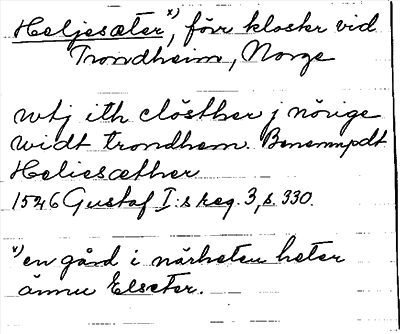 Heljesæter x), förr kloster vid
Trondheim, Norge
utj ith clösther j nörige
widt trondhem. Benempdt
Heliesæther
1526 Gustaf I:s reg. 3, s. 330.
x) en gård i närheten heter
ännu Elseter.